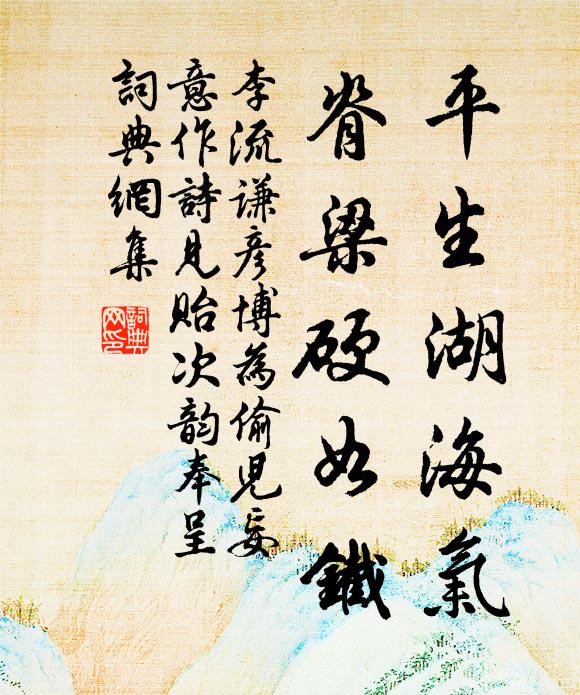 平生湖海氣
脊梁硬如鐵
李流謙彥博為偷兒妄
意作詩見貽次韵奉呈
詞典網集
詞典
网印